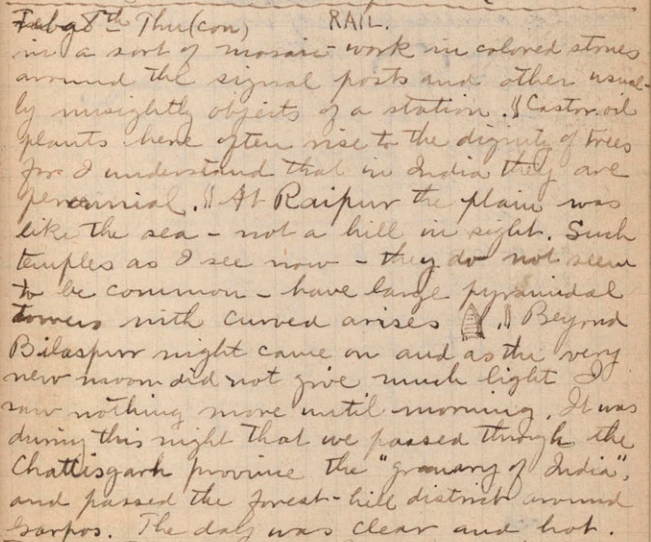 Feb 8th Thu (con) RAIL.
in a sort of mosaic-work in colored stones
around the signal posts and other usual-
ly unsightly objects of a station. || Castor oil
plants here often rise to the dignity of trees
for I understand that in India they are
perennial. || At Raipur the plain was
like the sea - not a hill in sight. Such
temples as I see now - they do not seem
to be common - have large pyramidal
towers with curved arises . || Beyond
Bilaspur night came on and as the very
new moon did not give much light I
saw nothing more until morning. It was
during this night that we passed through the
Chattisgarh province the "granary of India",
and passed the forest-hill district around
The day was clear and hot.